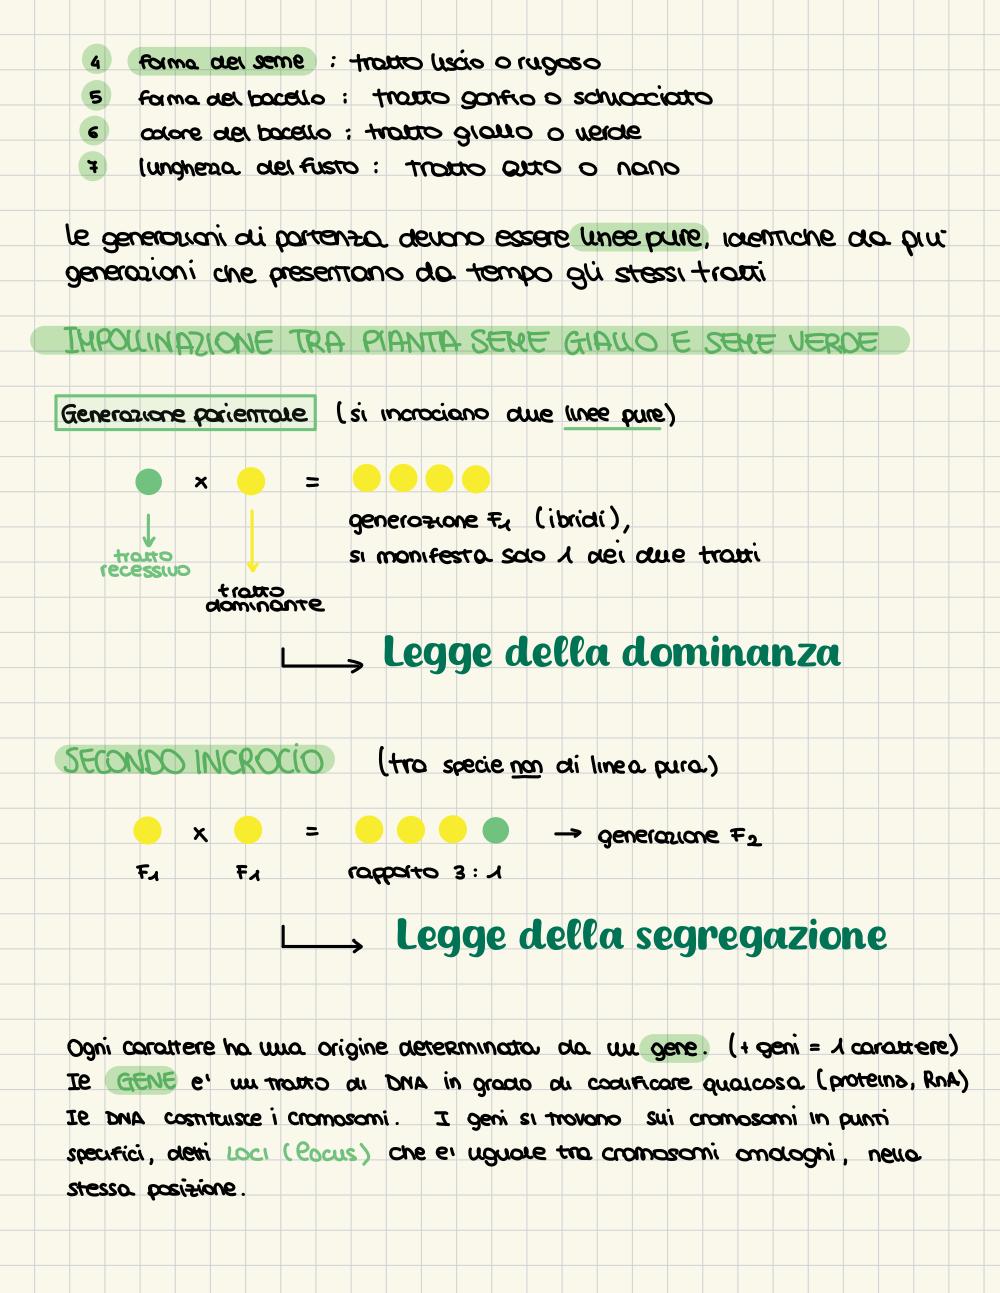 4 forma del seme : tratto liscio o rugoso
5 forma del bacello : tratto gonfio o schiacciato
6 colore del bacello : tratto giallo o verde
7 lunghezza del fusto : tratto alto o nano
le generazioni di partenza devono essere linee pure, identiche da più
generazioni che presentano da tempo gli stessi tratti
IMPOLLINAZIONE TRA PIANTA SEME GIALLO E SEME VERDE
Generazione parientale (si incrociano due linee pure)
x =
generazione F1 (ibridi),
si manifesta solo 1 dei due tratti
tratto
recessivo
tratto
dominante
Legge della dominanza
SECONDO INCROCIO (tra specie non di linea pura)
x = → generazione F2
F1 F1 rapporto 3:1
Legge della segregazione
Ogni carattere ha una origine determinata da un gene. (+ geni = 1 carattere)
Il GENE e' un tratto di DNA in grado di codificare qualcosa (proteina, RNA)
Il DNA costituisce i cromosomi. I geni si trovano sui cromosomi in punti
specifici, detti loci (locus) che e' uguale tra cromosomi omologhi, nella
stessa posizione.